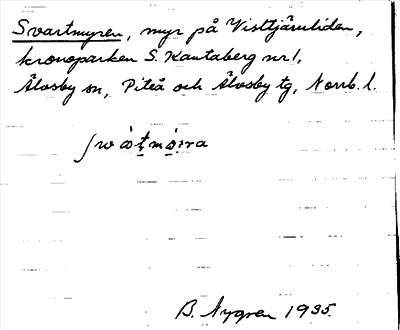 Svartmyren, myr på Visttjärnliden,
kronoparken S. Kantaberg nr 1,
Älvsby sn, Piteå och Älvsby tg, Norrb. l.
B. Nygren 1935.